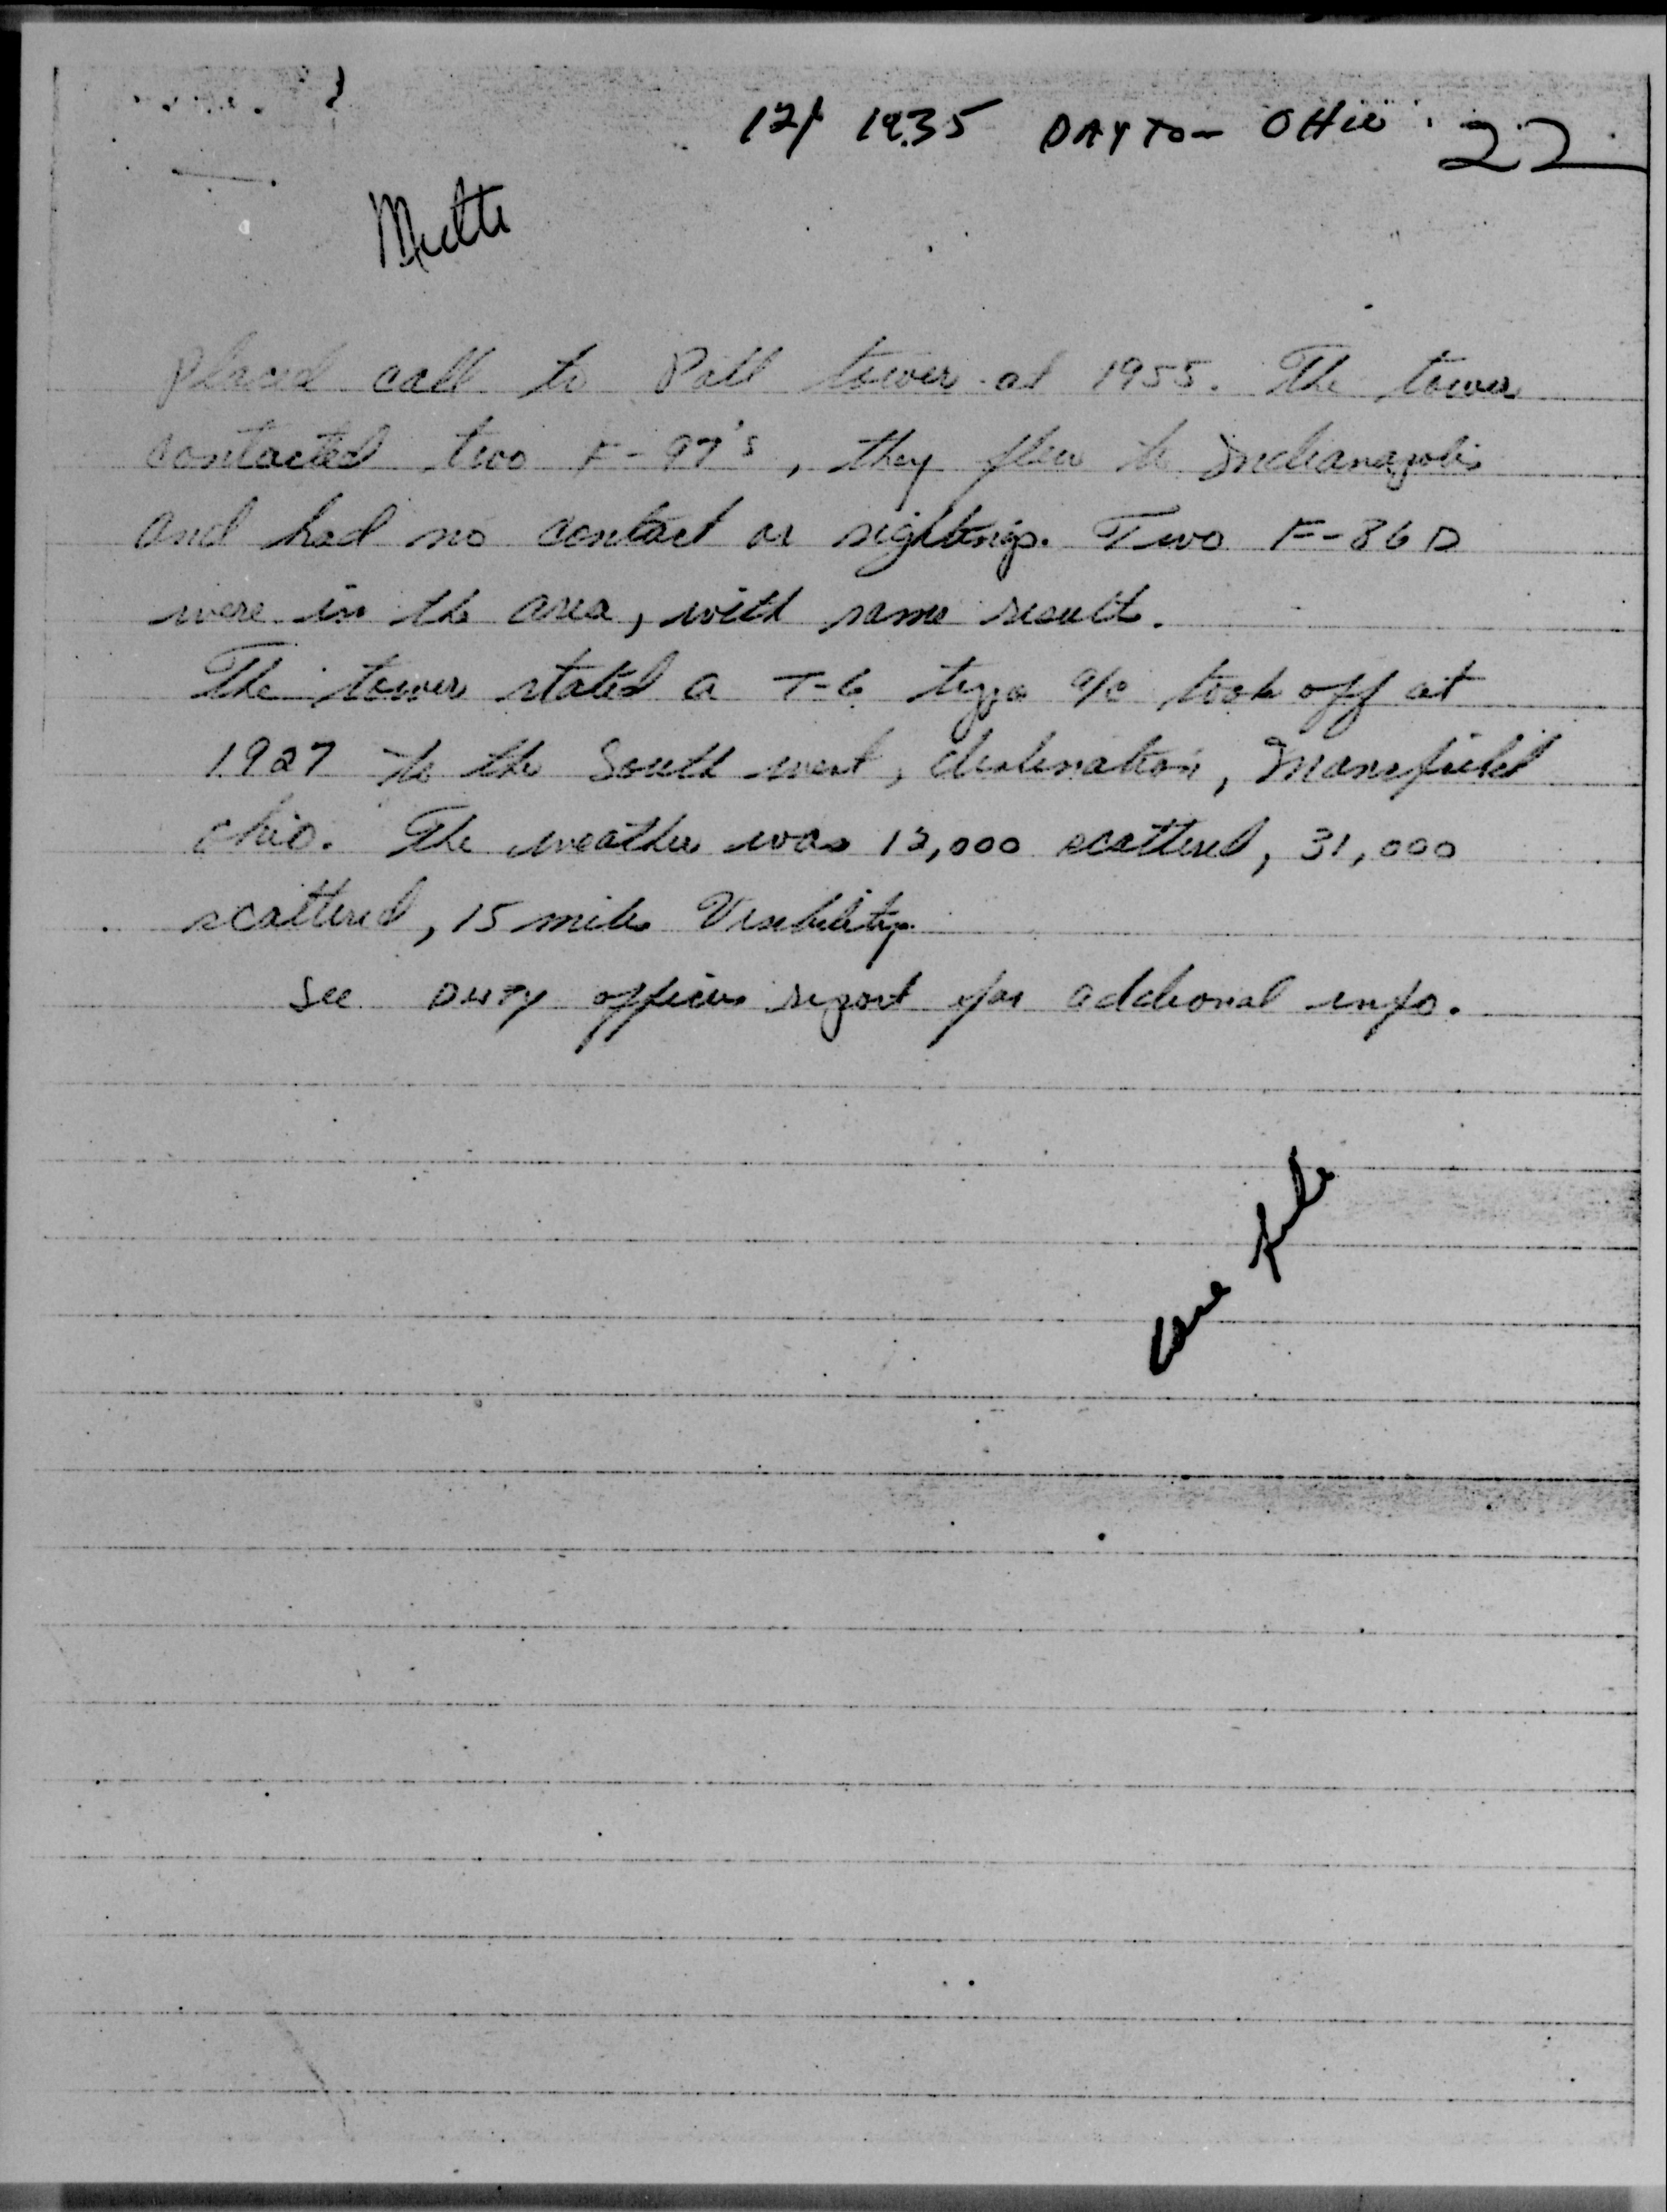 1935 DAYTON OHIO 22
Multi
placed call to Patt tower at 1955. The tower
contacted two F-97's, they flew to Indianapolis
and had no contact or sightings. Two F-86D
were in the area, with same result.
The tower stated a T-6 type a/c took off at
1927 to the South west, destination, Mansfield
Ohio. The weather was 12,000 scattered, 31,000
scattered, 15 miles Visibility.
See DUTY officers report for addional info.
Case File